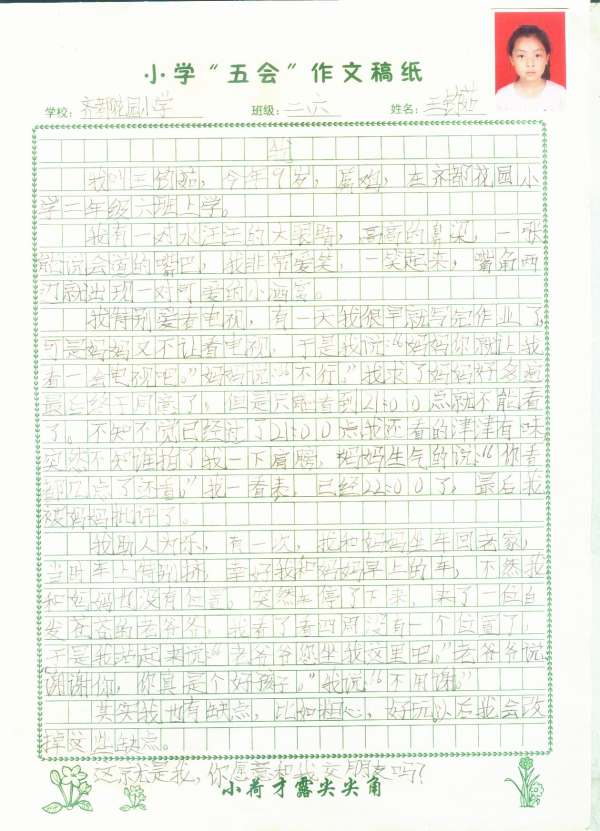 小学“五会”作文稿纸
学校：齐都花园小学 班级：二六 姓名：王钧茹
我
我叫王钧茹，今年9岁，属鸡，在齐都花园小
学二年级六班上学。
我有一对水汪汪的大眼睛，高高的鼻梁，一张
能说会道的嘴巴，我非常爱笑，一笑起来，嘴角两
边就出现一对可爱的小酒窝。
我特别爱看电视，有一天我很早就写完作业了，
可是妈妈又不让看电视，于是我说：“妈妈你就让我
看一会电视吧。”妈妈说：“不行。”我求了妈妈好多遍
最后终于同意了，但是只能看到21:00点就不能看
了。不知不觉已经过了21:00点我还看的津津有味，
突然不知谁拍了我一下肩膀，妈妈生气的说：“你看
都几点了还看。”我一看表，已经22:00了，最后我
被妈妈批评了。
我助人为乐，有一次，我和妈妈坐车回老家，
当时车上特别挤，幸好我和妈妈早上的车，不然我
和妈妈也没有位置。突然车停了下来，来了一位白
发苍苍的老爷爷，我看了看四周没有一个位置了，
于是我站起来说“老爷爷您坐我这里吧。”老爷爷说
“谢谢你，你真是个好孩子。”我说“不用谢。”
其实我也有缺点，比如粗心，好玩以后我会改
掉这些缺点。
这就是我，你愿意和我交朋友吗？
小荷才露尖尖角